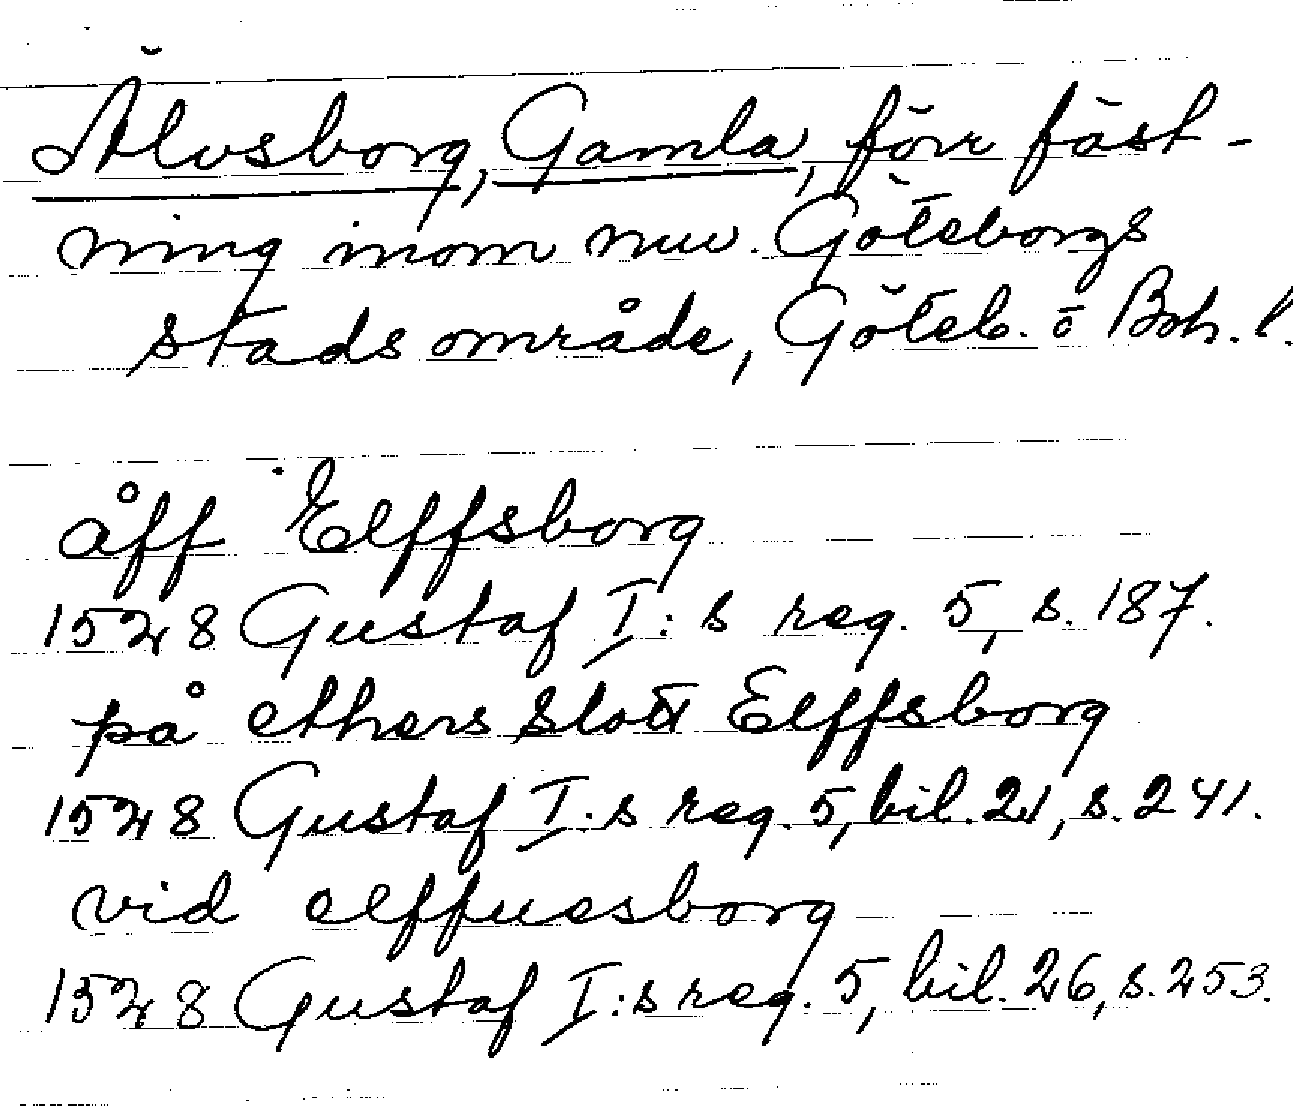 Älvsborg, Gamla, förr fäst-
ning inom nuv. Göteborgs
stadsområde, Göteb. o Boh. l.
åff Elffsborg
1528 Gustaf I:s reg. 5, s. 187.
på ethers slott Elffsborg
1528 Gustaf I:s reg. 5, bil. 21, s. 241.
vid elffuesborg
1528 Gustaf I:s reg. 5, bil. 26, s. 253.